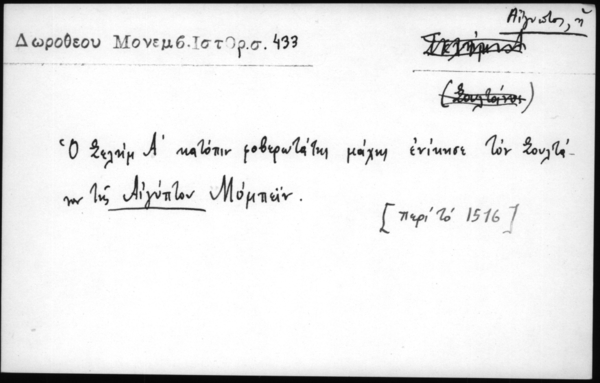 Αἴγυπτος, ἡ
Δωροθεου Μονεμβ.Ιστορ.σ. 433
Σελήμ Α
(Σουλτάνοι)
Ὁ Σελήμ Α' κατόπιν φοβερωτάτης μάχης ἐνίκησε τόν Σουλτά-
νον τῆς Αἰγύπτου Μόμπεϊν.
[περί τό 1516]